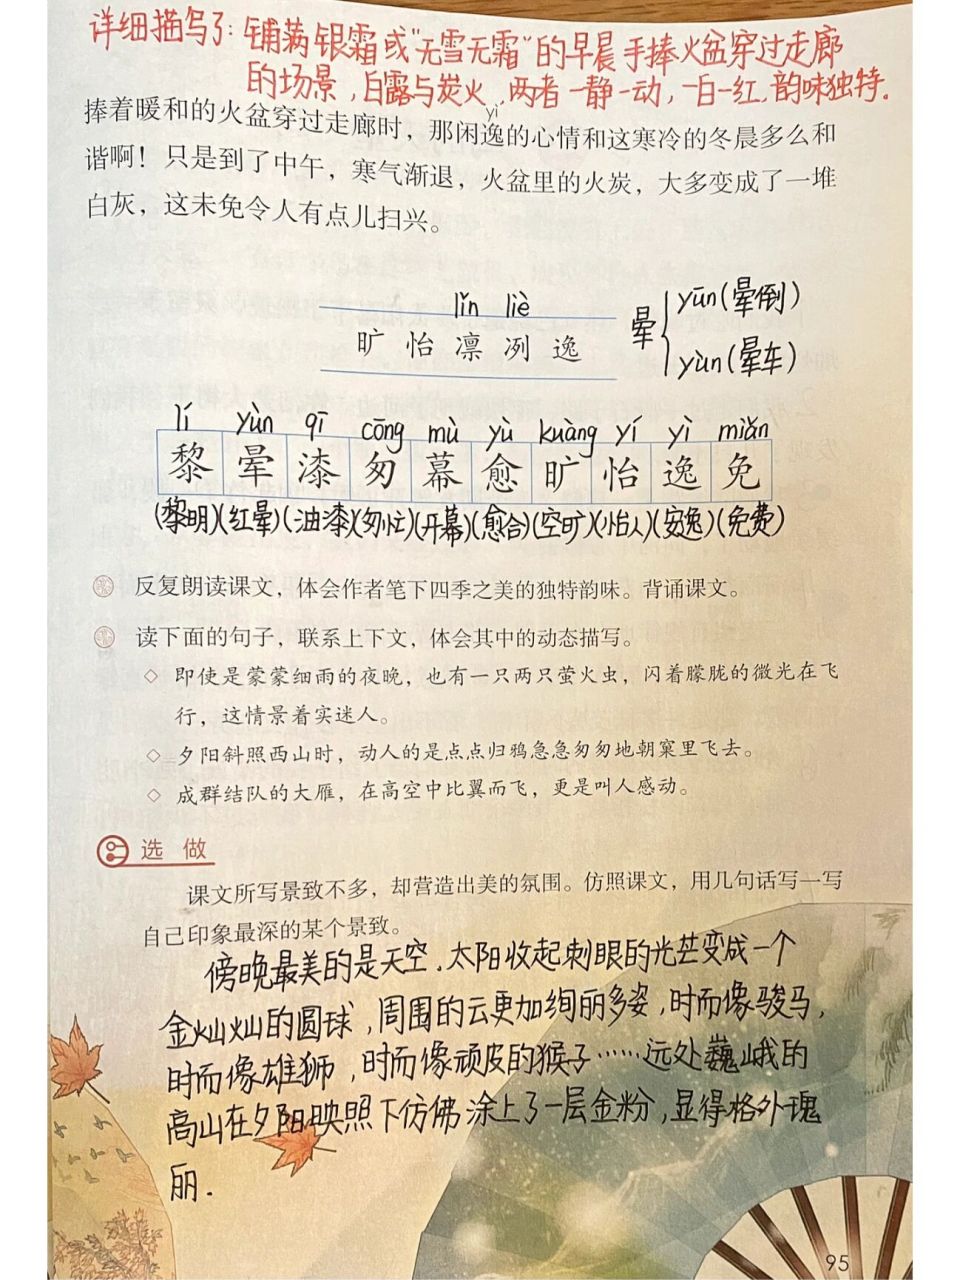 详细描写了：铺满银霜或“无雪无霜”的早晨手捧火盆穿过走廊
的场景，白露与炭火，两者一静一动，一白一红，韵味独特。
yì
捧着暖和的火盆穿过走廊时，那闲逸的心情和这寒冷的冬晨多么和
谐啊！只是到了中午，寒气渐退，火盆里的火炭，大多变成了一堆
白灰，这未免令人有点儿扫兴。
lǐn liè
旷 怡 凛 冽 逸
晕 yūn(晕倒)
yùn(晕车)
lí yùn qī cōng mù yù kuàng yí yì miǎn
黎 晕 漆 匆 幕 愈 旷 怡 逸 免
(黎明)(红晕)(油漆)(匆忙)(开幕)(愈合)(空旷)(怡人)(安逸)(免费)
反复朗读课文，体会作者笔下四季之美的独特韵味。背诵课文。
读下面的句子，联系上下文，体会其中的动态描写。
◇ 即使是蒙蒙细雨的夜晚，也有一只两只萤火虫，闪着朦胧的微光在飞
行，这情景着实迷人。
◇ 夕阳斜照西山时，动人的是点点归鸦急急匆匆地朝窠里飞去。
◇ 成群结队的大雁，在高空中比翼而飞，更是叫人感动。
选 做
课文所写景致不多，却营造出美的氛围。仿照课文，用几句话写一写
自己印象最深的某个景致。
傍晚最美的是天空.太阳收起刺眼的光芒变成一个
金灿灿的圆球，周围的云更加绚丽多姿，时而像骏马，
时而像雄狮，时而像顽皮的猴子……远处巍峨的
高山在夕阳映照下仿佛涂上了一层金粉，显得格外瑰
丽.
95